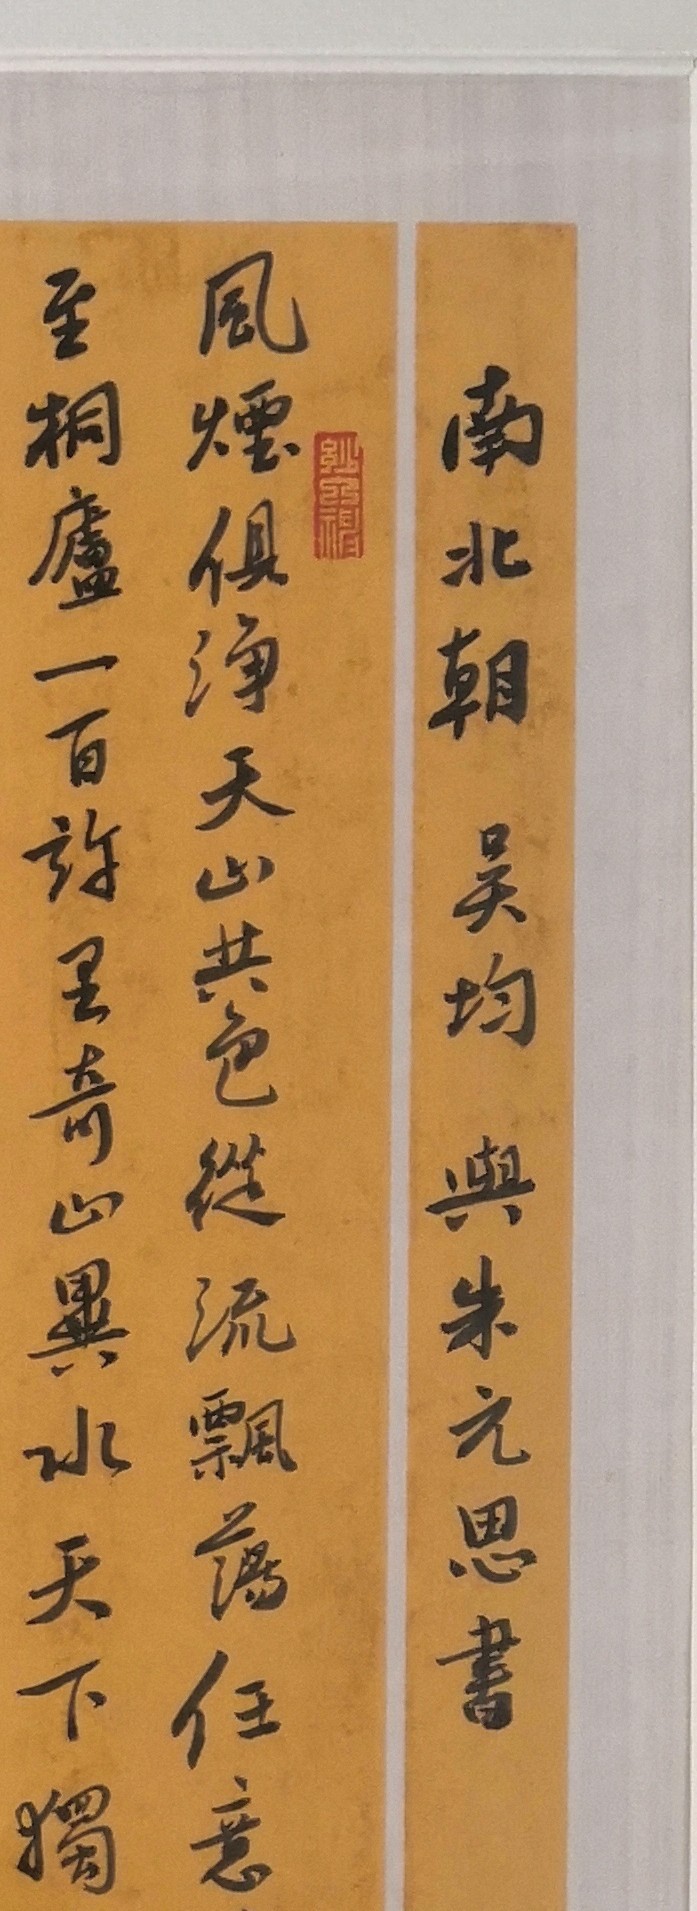 南北朝 吴均 與朱元思書
風煙俱淨天山共色從流飄蕩任意
至桐廬一百許里奇山異水天下獨